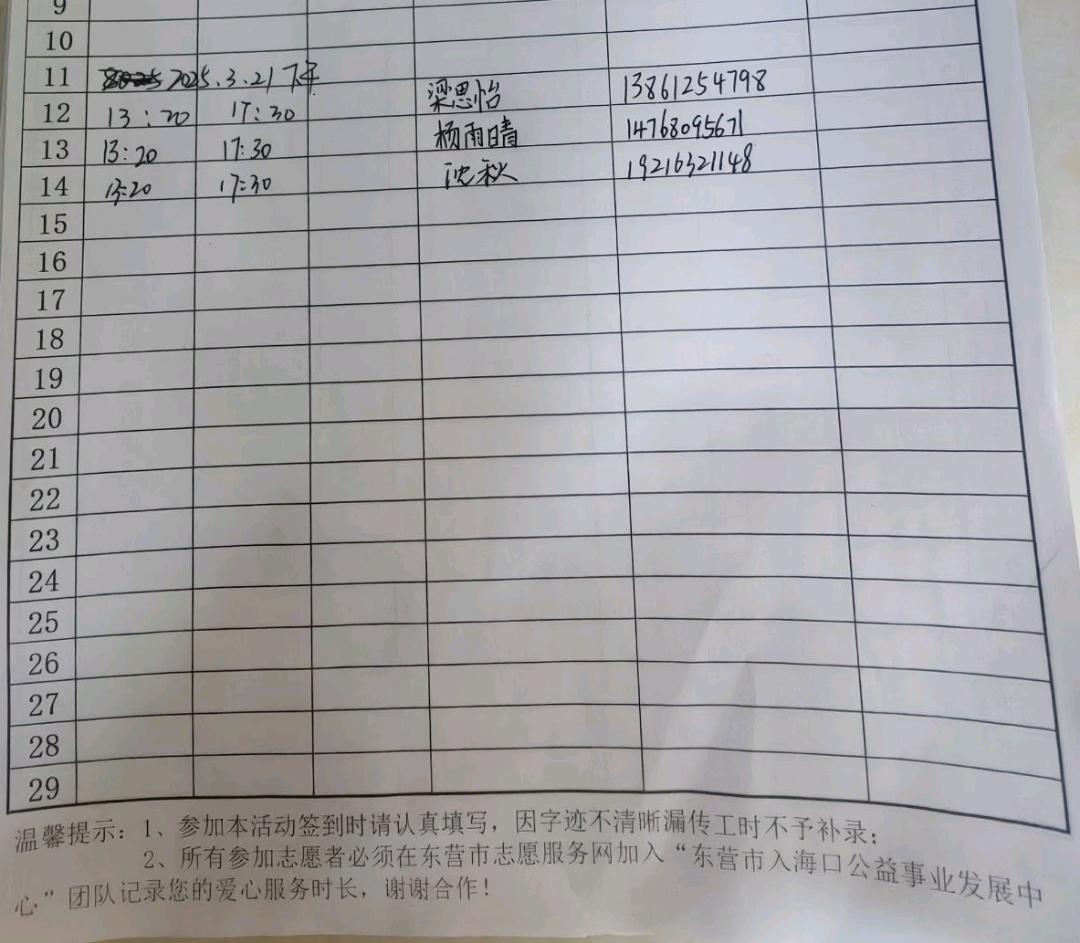 9
10
11 2025.3.21 下午
12 13:20 17:30 梁思怡 13861254798
13 13:20 17:30 杨雨晴 14768095671
14 13:20 17:30 沈秋 19216321148
15
16
17
18
19
20
21
22
23
24
25
26
27
28
29
温馨提示：1、参加本活动签到时请认真填写，因字迹不清晰漏传工时不予补录；
2、所有参加志愿者必须在东营市志愿服务网加入“东营市入海口公益事业发展中
心”团队记录您的爱心服务时长，谢谢合作！